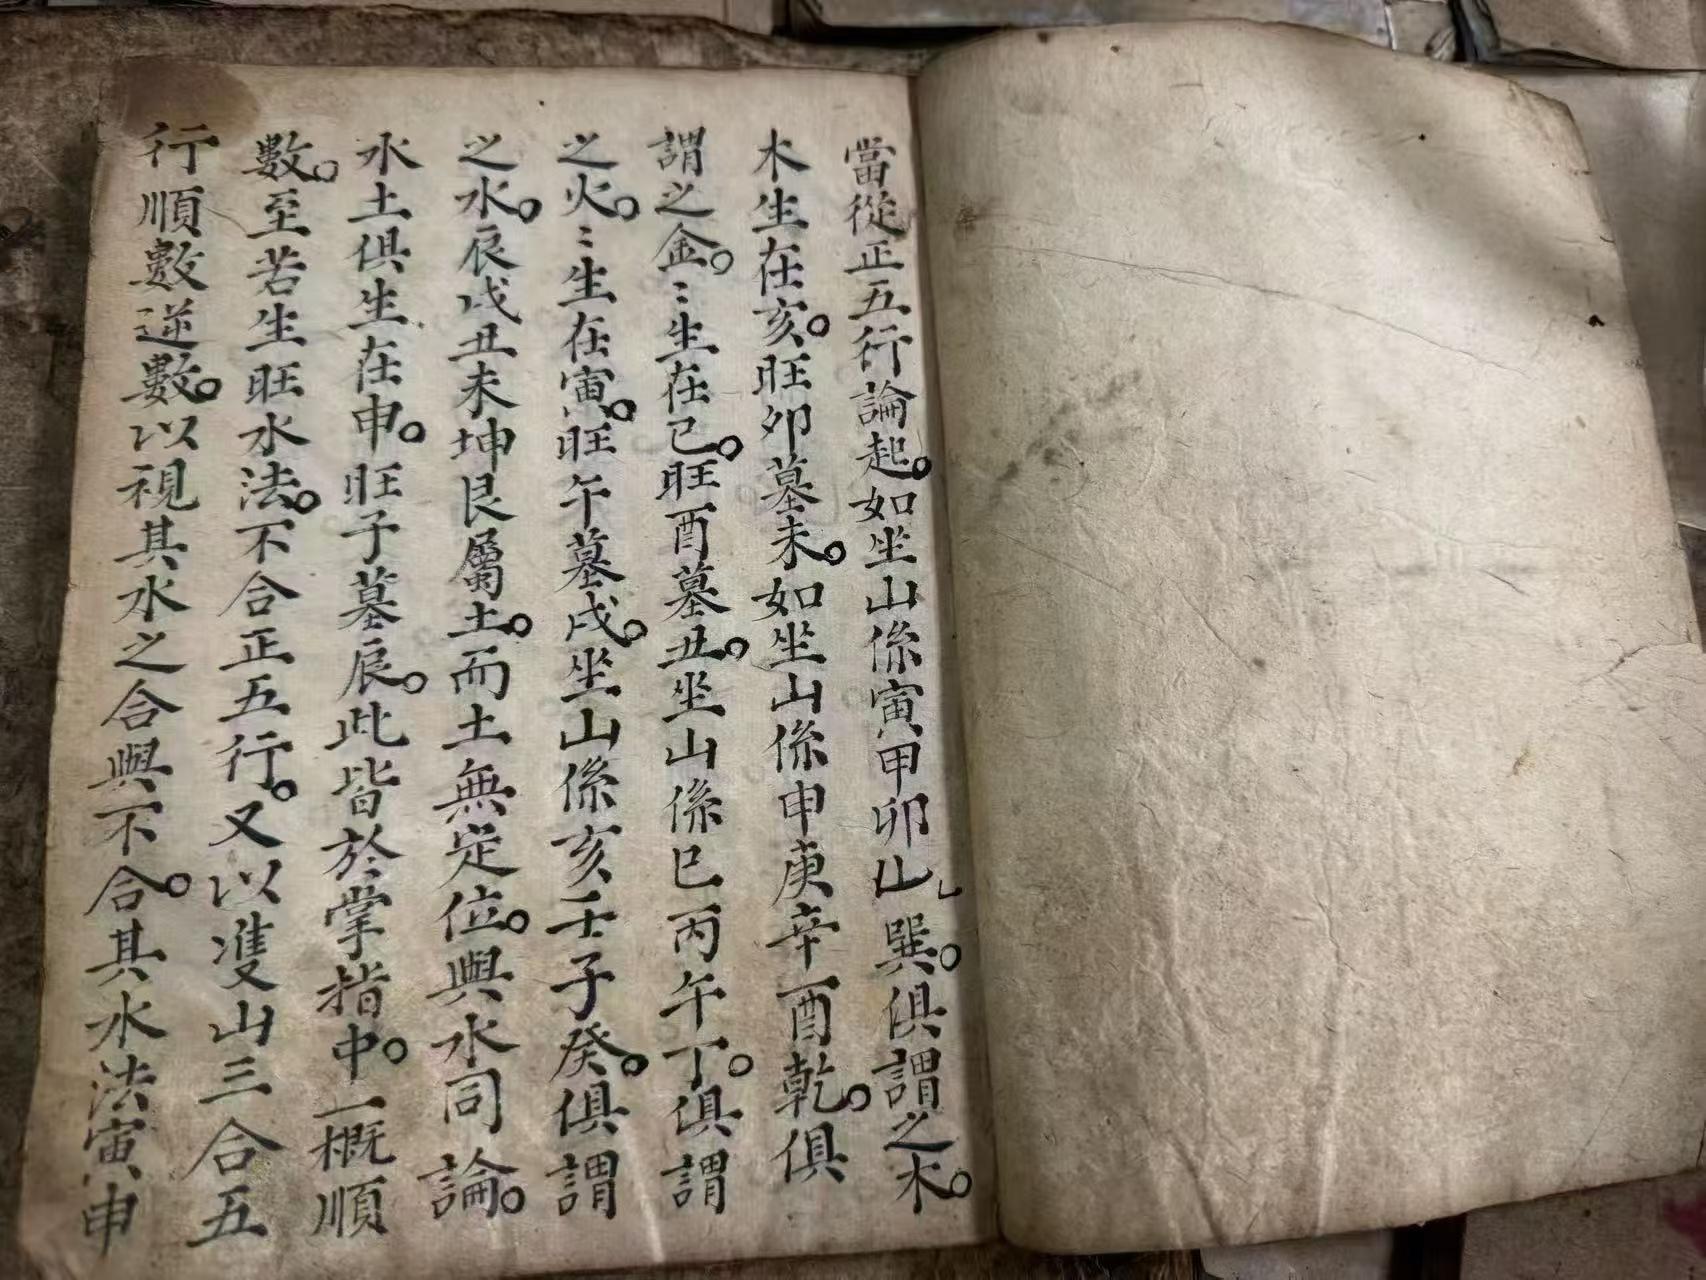 當從正五行論起。如坐山係寅甲卯山乚巽。俱謂之木。
木生在亥。旺卯墓未。如坐山係申庚辛酉乾。俱
謂之金。〻生在巳。旺酉墓丑。坐山係巳丙午丁。俱謂
之火。〻生在寅。旺午墓戌。坐山係亥壬子癸。俱謂
之水。辰戌丑未坤艮屬土。而土無定位。與水同論。
水土俱生在申。旺子墓辰。此皆於掌指中。一概順
數。至若生旺水法。不合正五行。又以雙山三合五
行順數逆數。以視其水之合與不合。其水法寅申